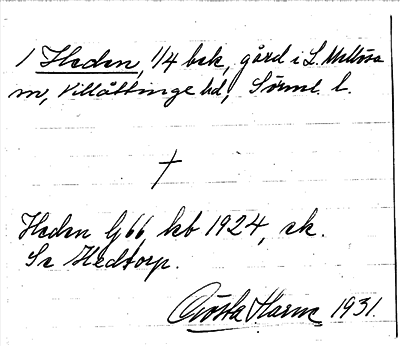 1 Heden, 1/4 bck, gård i L. Mellösa
sn, Villåttinge hd, Sörml. l.
†
Heden Gg 66, kb 1924, ek.
Se Hedtorp.
Gösta Harm 1931.